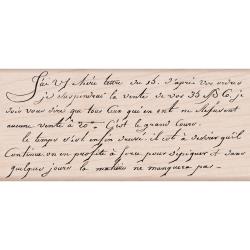 J'ai Vs. Chère lettre du 15. d'après vos ordres
je suspendrai la vente de vos 35 B C. je
dois vous dire que tous Ceux qui en ont ne Refusent
aucune vente à 20 C'est le grand Cours.
le temps s'est enfin assuré. il est à desirer qu'il
Continue on en profite à force pour dépiquer et dans
quelques jours la matière ne manquera pas -